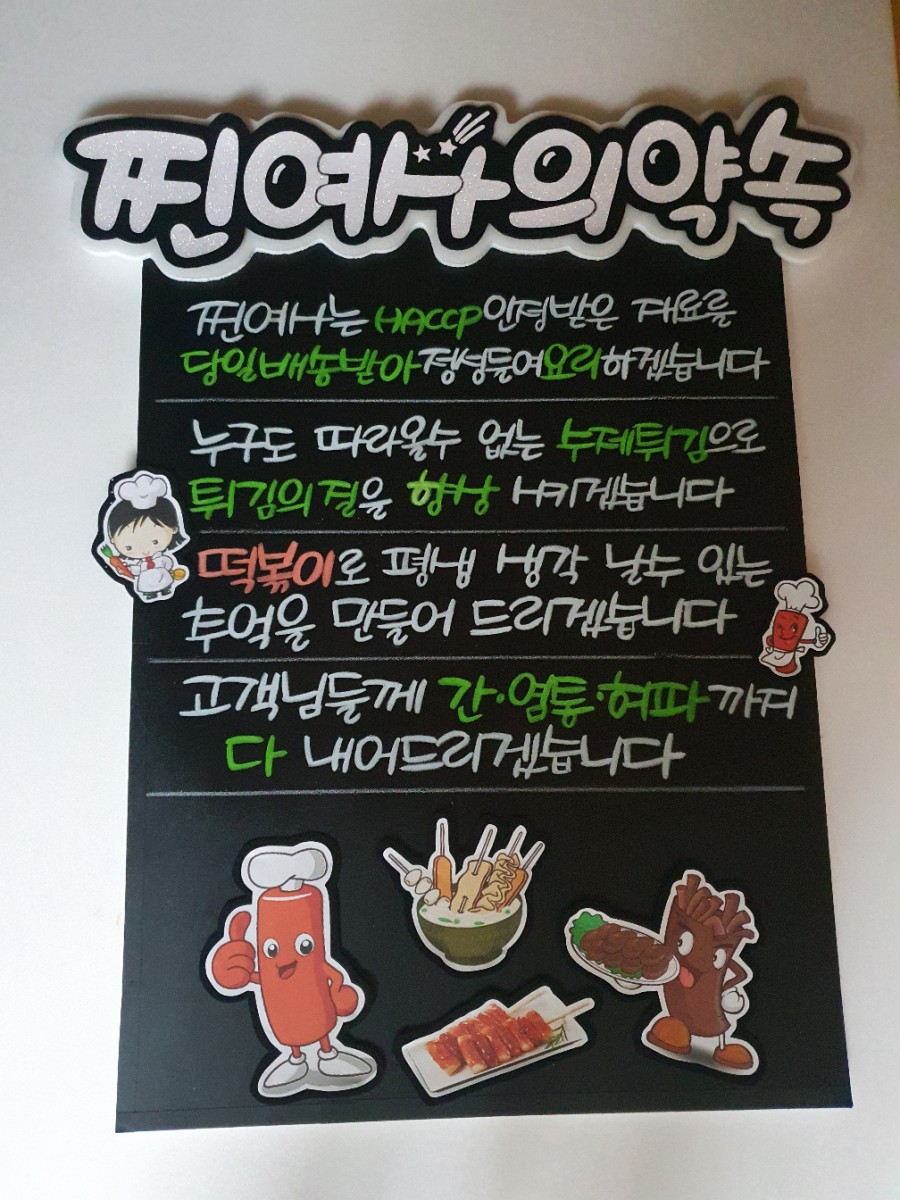 찐여사의약속
찐여사는 HACCP인정받은 재료를
당일배송받아정성들여요리하겠습니다
누구도 따라올수 없는 수제튀김으로
튀김의결을 항상 지키겠습니다
떡볶이로 평생 생각 날수 있는
추억을 만들어 드리겠습니다
고객님들께 간·염통·허파까지
다 내어드리겠습니다